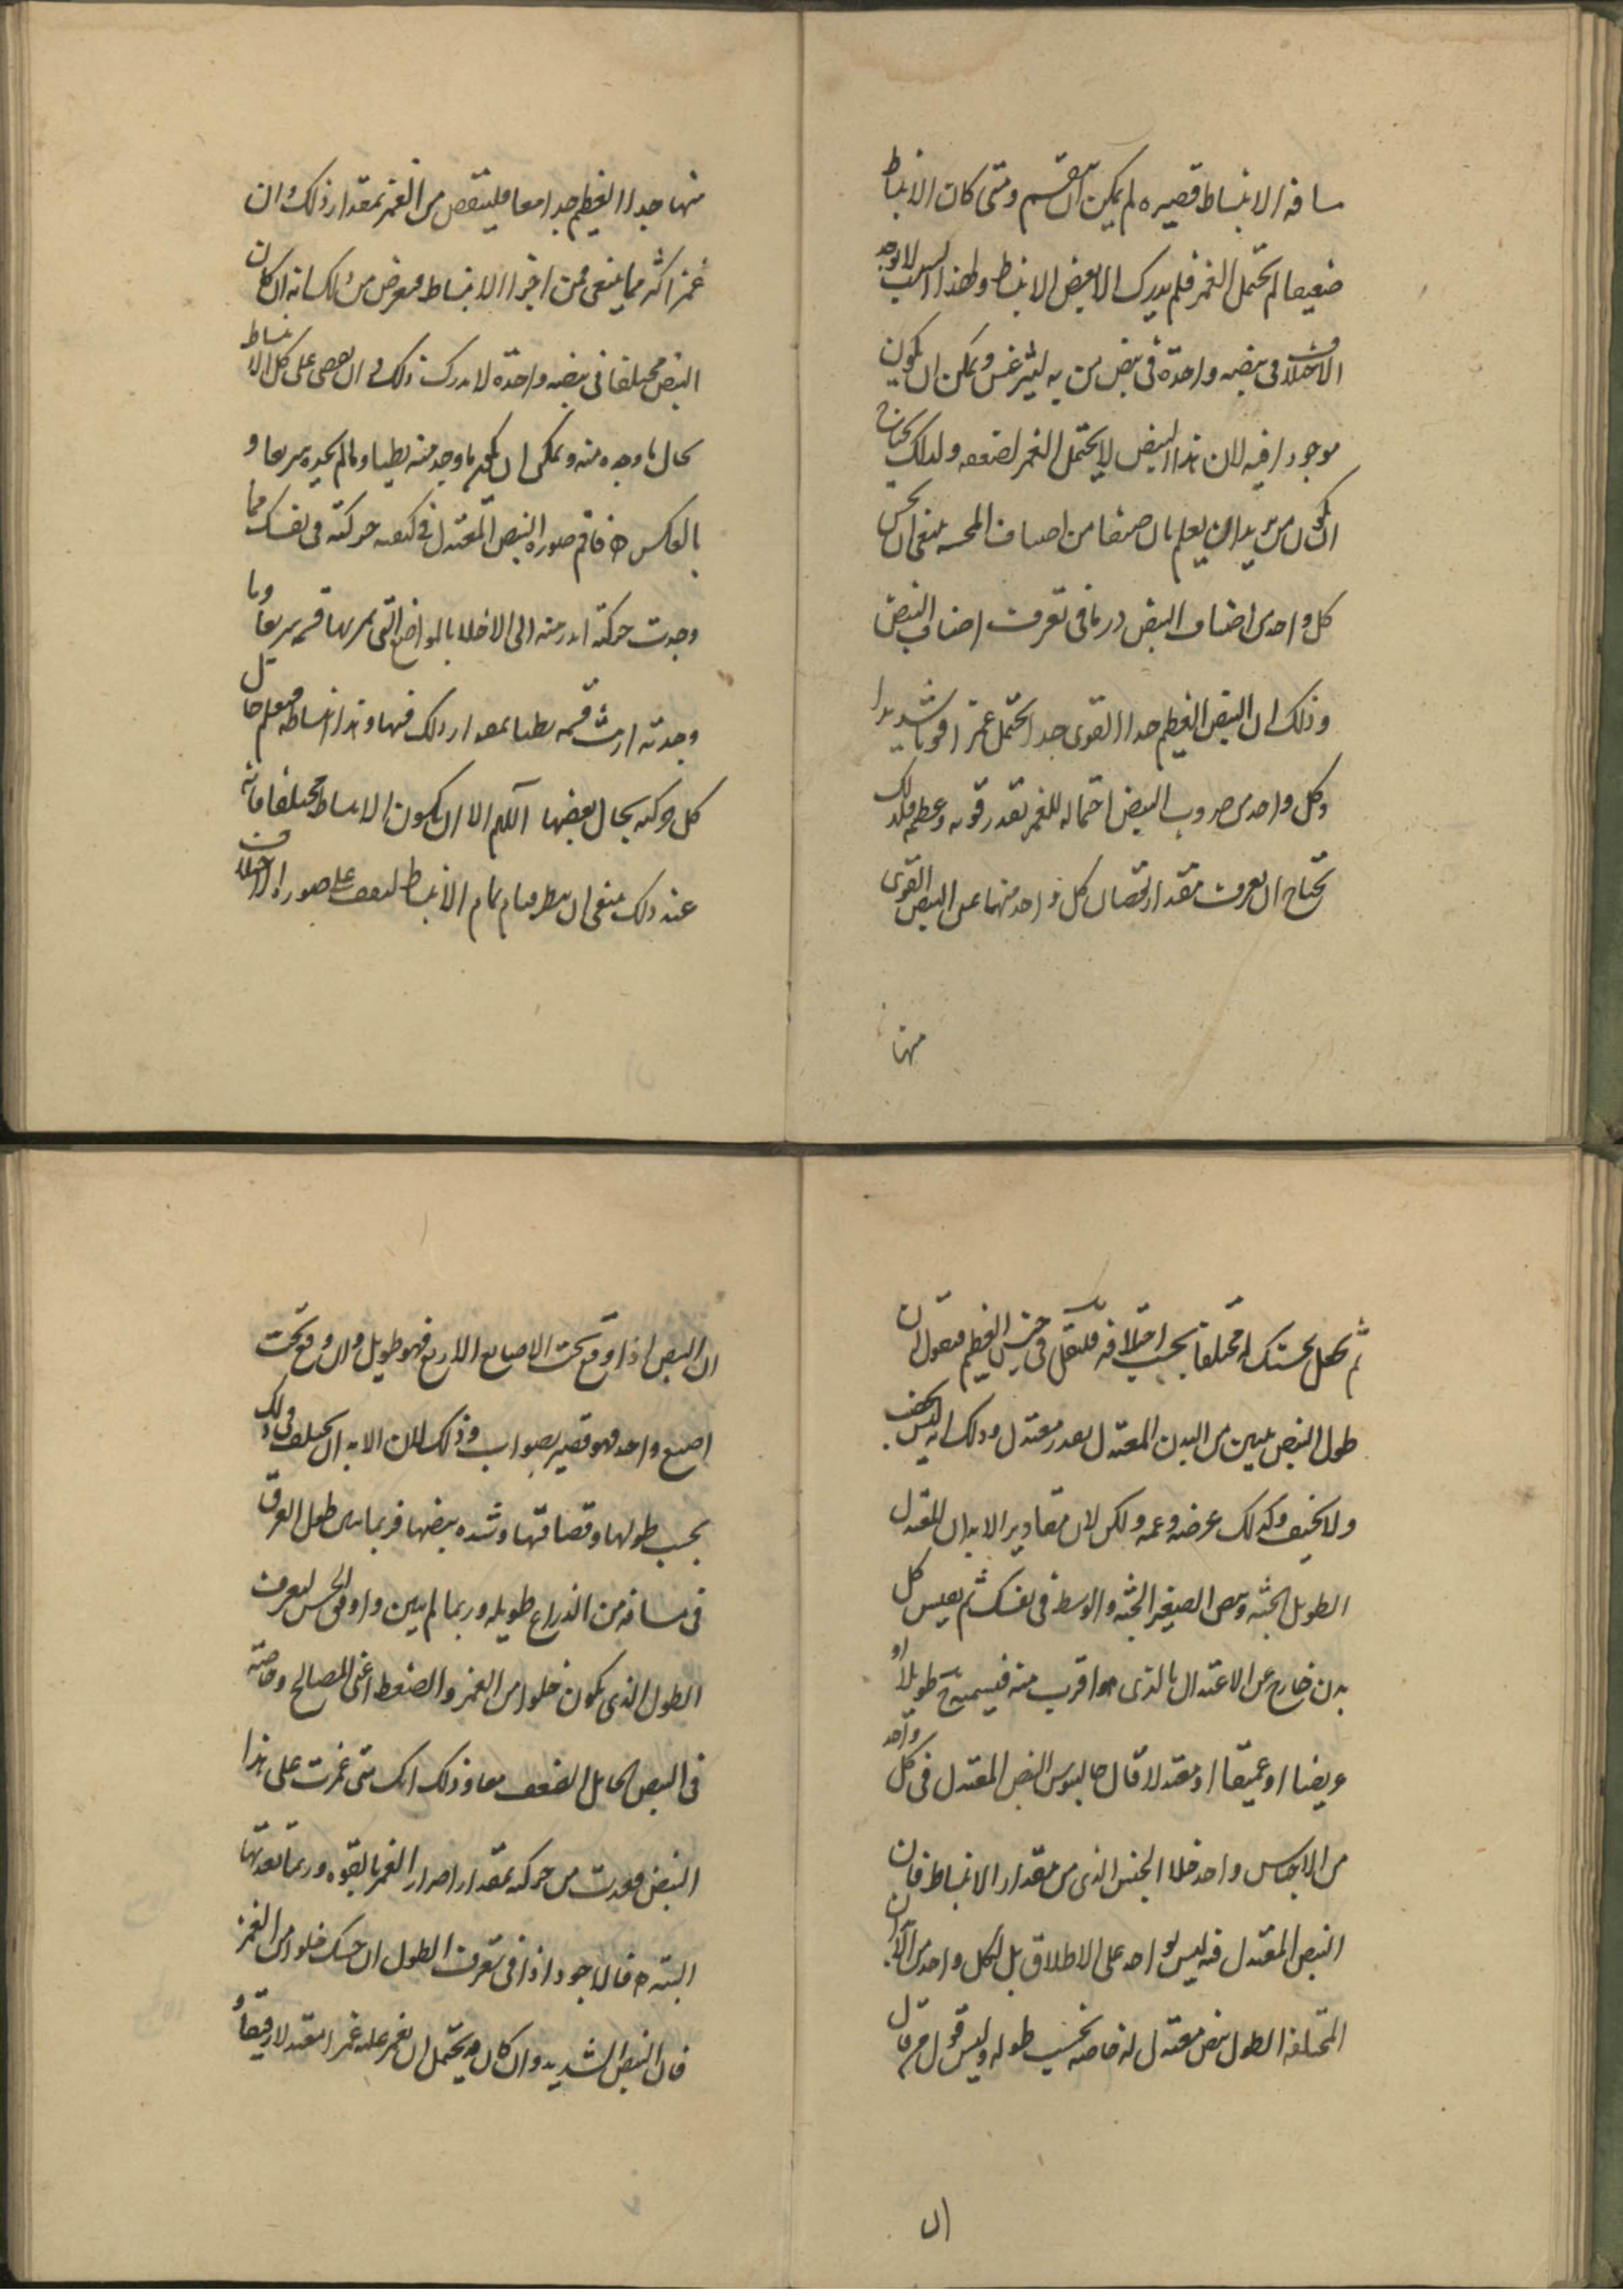 مسافة الانبساط قصيره لم يمكن ان تنقسم ومتى كان الانبساط
ضعيفا لم يحتمل الغمز فلم يدرك الا بعض الانبساط ولهذا السبب لا يوجد
الاختلاف فى نبضه واحدة فى نبض من به ليثرغس ويمكن ان يكون
موجودا فيه لان هذا النبض لا يحتمل الغمز لضعفه ولذلك يحتاج
ان يكون من يريد ان يعلم بان صنفا من اصناف المجسه ينبغى ان يجس
كل واحد من اصناف النبض دربا فى تعرف اصناف النبض
وذلك ان النبض العظيم جدا القوى جدا يحتمل غمزا قويا شديدا
وكل واحد من ضروب النبض احتماله للغمز بقدر قوته وعظمه فلذلك
تحتاج ان تعرف مقدار نقصان كل واحد منهما عن النبض القوى
منها
منها جدا العظيم جدا معا فلينقص من الغمز بمقدار ذلك وان
غمز اكثر مما ينبغى افنى من اجزا الانبساط فيعرض من ذلك انه ان كان
النبض مختلفا فى نبضه واحدة لا يدرك ذلك وان يقضى على كل الانبساط
بحال ما وجده منه ويمكن ان يكون ما وجد منه بطيا وما لم يجده سريعا و
بالعكس ه فاقم صورة النبض المعتدل فى كيفيه حركته فى نفسك فما
وجدت حركته ادر منه الى الاخلا بالمواضع التى يمر بها فسمه سريعا وما
وجدته ارث فسمه بطيا بمقدار ذلك فيها وهذا انبساطه فتعلم حال
كل حركه بحال بعضها اللهم الا ان يكون الانبساط مختلفا فانه
عند ذلك ينبغى ان ينتظر تمام الانبساط ليقف على صورة الاختلاف
ثم تجعل بحسك له مختلفا بحسب اختلافه فلننقل فى جنس العظيم فنقول ان
طول النبض يتبين من البدن المعتدل بقدر معتدل وذلك انه ليس يخف
ولا يخيف وكذلك عرضه وعمقه ولكن لان مقادير الابدان المعتدل
الطويل الجثه ونبض الصغير الجثه والوسط فى نفسك ثم يقيس كل
بدن خارج عن الاعتدال بالذى هو اقرب منه فيسميه طويلا او
عريضا او عميقا او معتدلا قال جالينوس النبض المعتدل فى كل واحد
من الاجناس واحد خلا الجنس الذى من مقدار الانبساط فان
النبض المعتدل فيه ليس بواحد على الاطلاق بل لكل واحد من الابدان
المختلفة الطول نبض معتدل له خاصه بحسب طوله وليس قول من قال
ان
ان النبض اذا وقع تحت الاصابع الاربع فهو طويل وان وقع تحت
اصبع واحد فهو قصير بصواب وذلك لان الابدان تختلف فى ذلك
بحسب طولها وقضافتها وشده نبضها فربما تبين طول العرق
فى مسافة من الذراع طويله وربما لم يبين واوفى الحس لتعرف
الطول الذى يكون خلوا من الغمز والضغط اعنى المصالح وخاصة
فى النبض الحامل الضعف معا وذلك انك متى غمزت على هذا
النبض فقدت من حركته بمقدار اضرار الغمز بالقوه وربما فقدتها
البته ه فالاجود اذا فى تعرف الطول ان تجسك خلوا من الغمز
فان النبض الشديد وان كان قد يحتمل ان تغمز عليه غمزا معتدلا رقيقا و